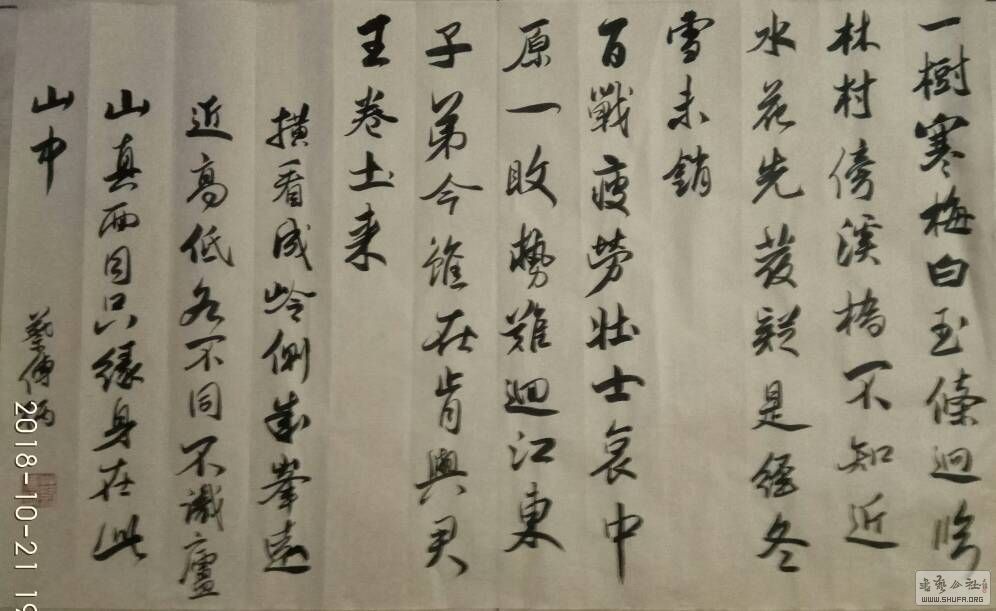 一樹寒梅白玉條迥臨
林村傍溪橋不知近
水花先發疑是經冬
雪未銷
百戰疲勞壯士哀中
原一敗勢難迴江東
子弟今雖在肯與君
王卷土来
橫看成岭側成峯遠
近高低各不同不識廬
山真面目只緣身在此
山中
2018-10-21 19
書藝公社
WWW.SHUFA.ORG